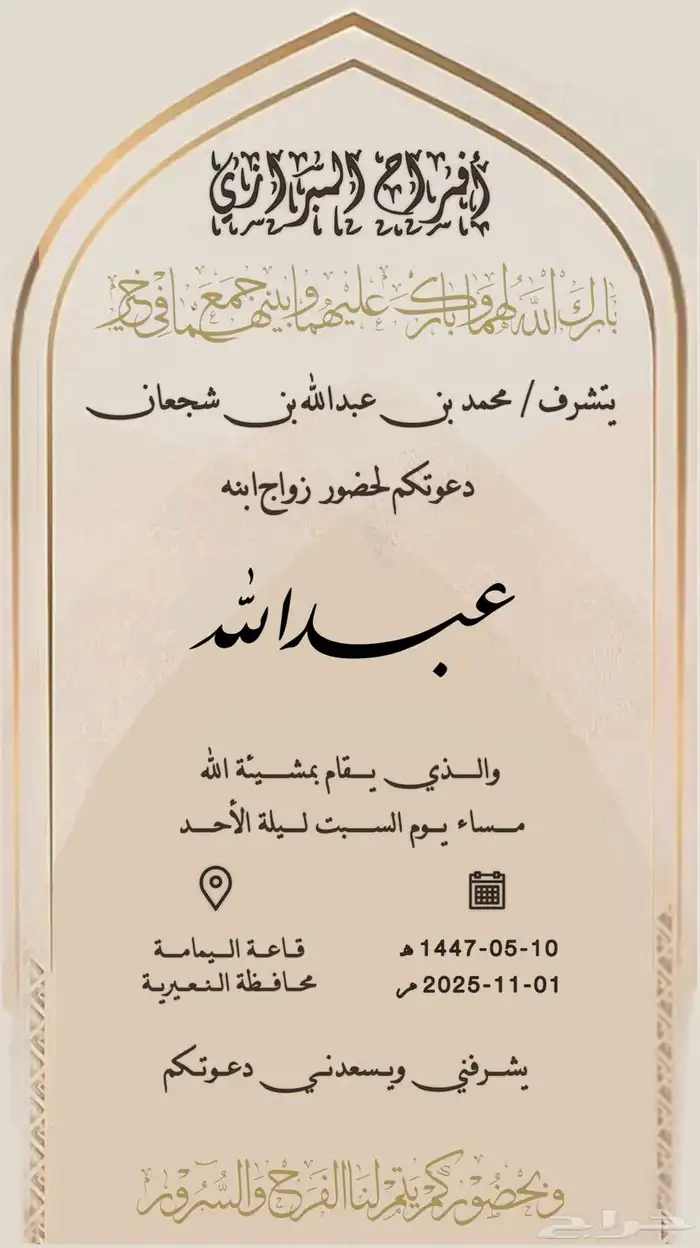 أفراح البرازي
بارك الله لهما وبارك عليهما وجمع بينهما في خير
يتشرف / محمد بن عبدالله بن شجعان
دعوتكم لحضور زواج ابنه
عبدالله
والذي يقام بمشيئة الله
مساء يوم السبت ليلة الأحد
1447-05-10 هـ
2025-11-01 م
قاعة اليمامة
محافظة النعيرية
يشرفني ويسعدني دعوتكم
وبحضوركم يتم لنا الفرح والسرور
حراج